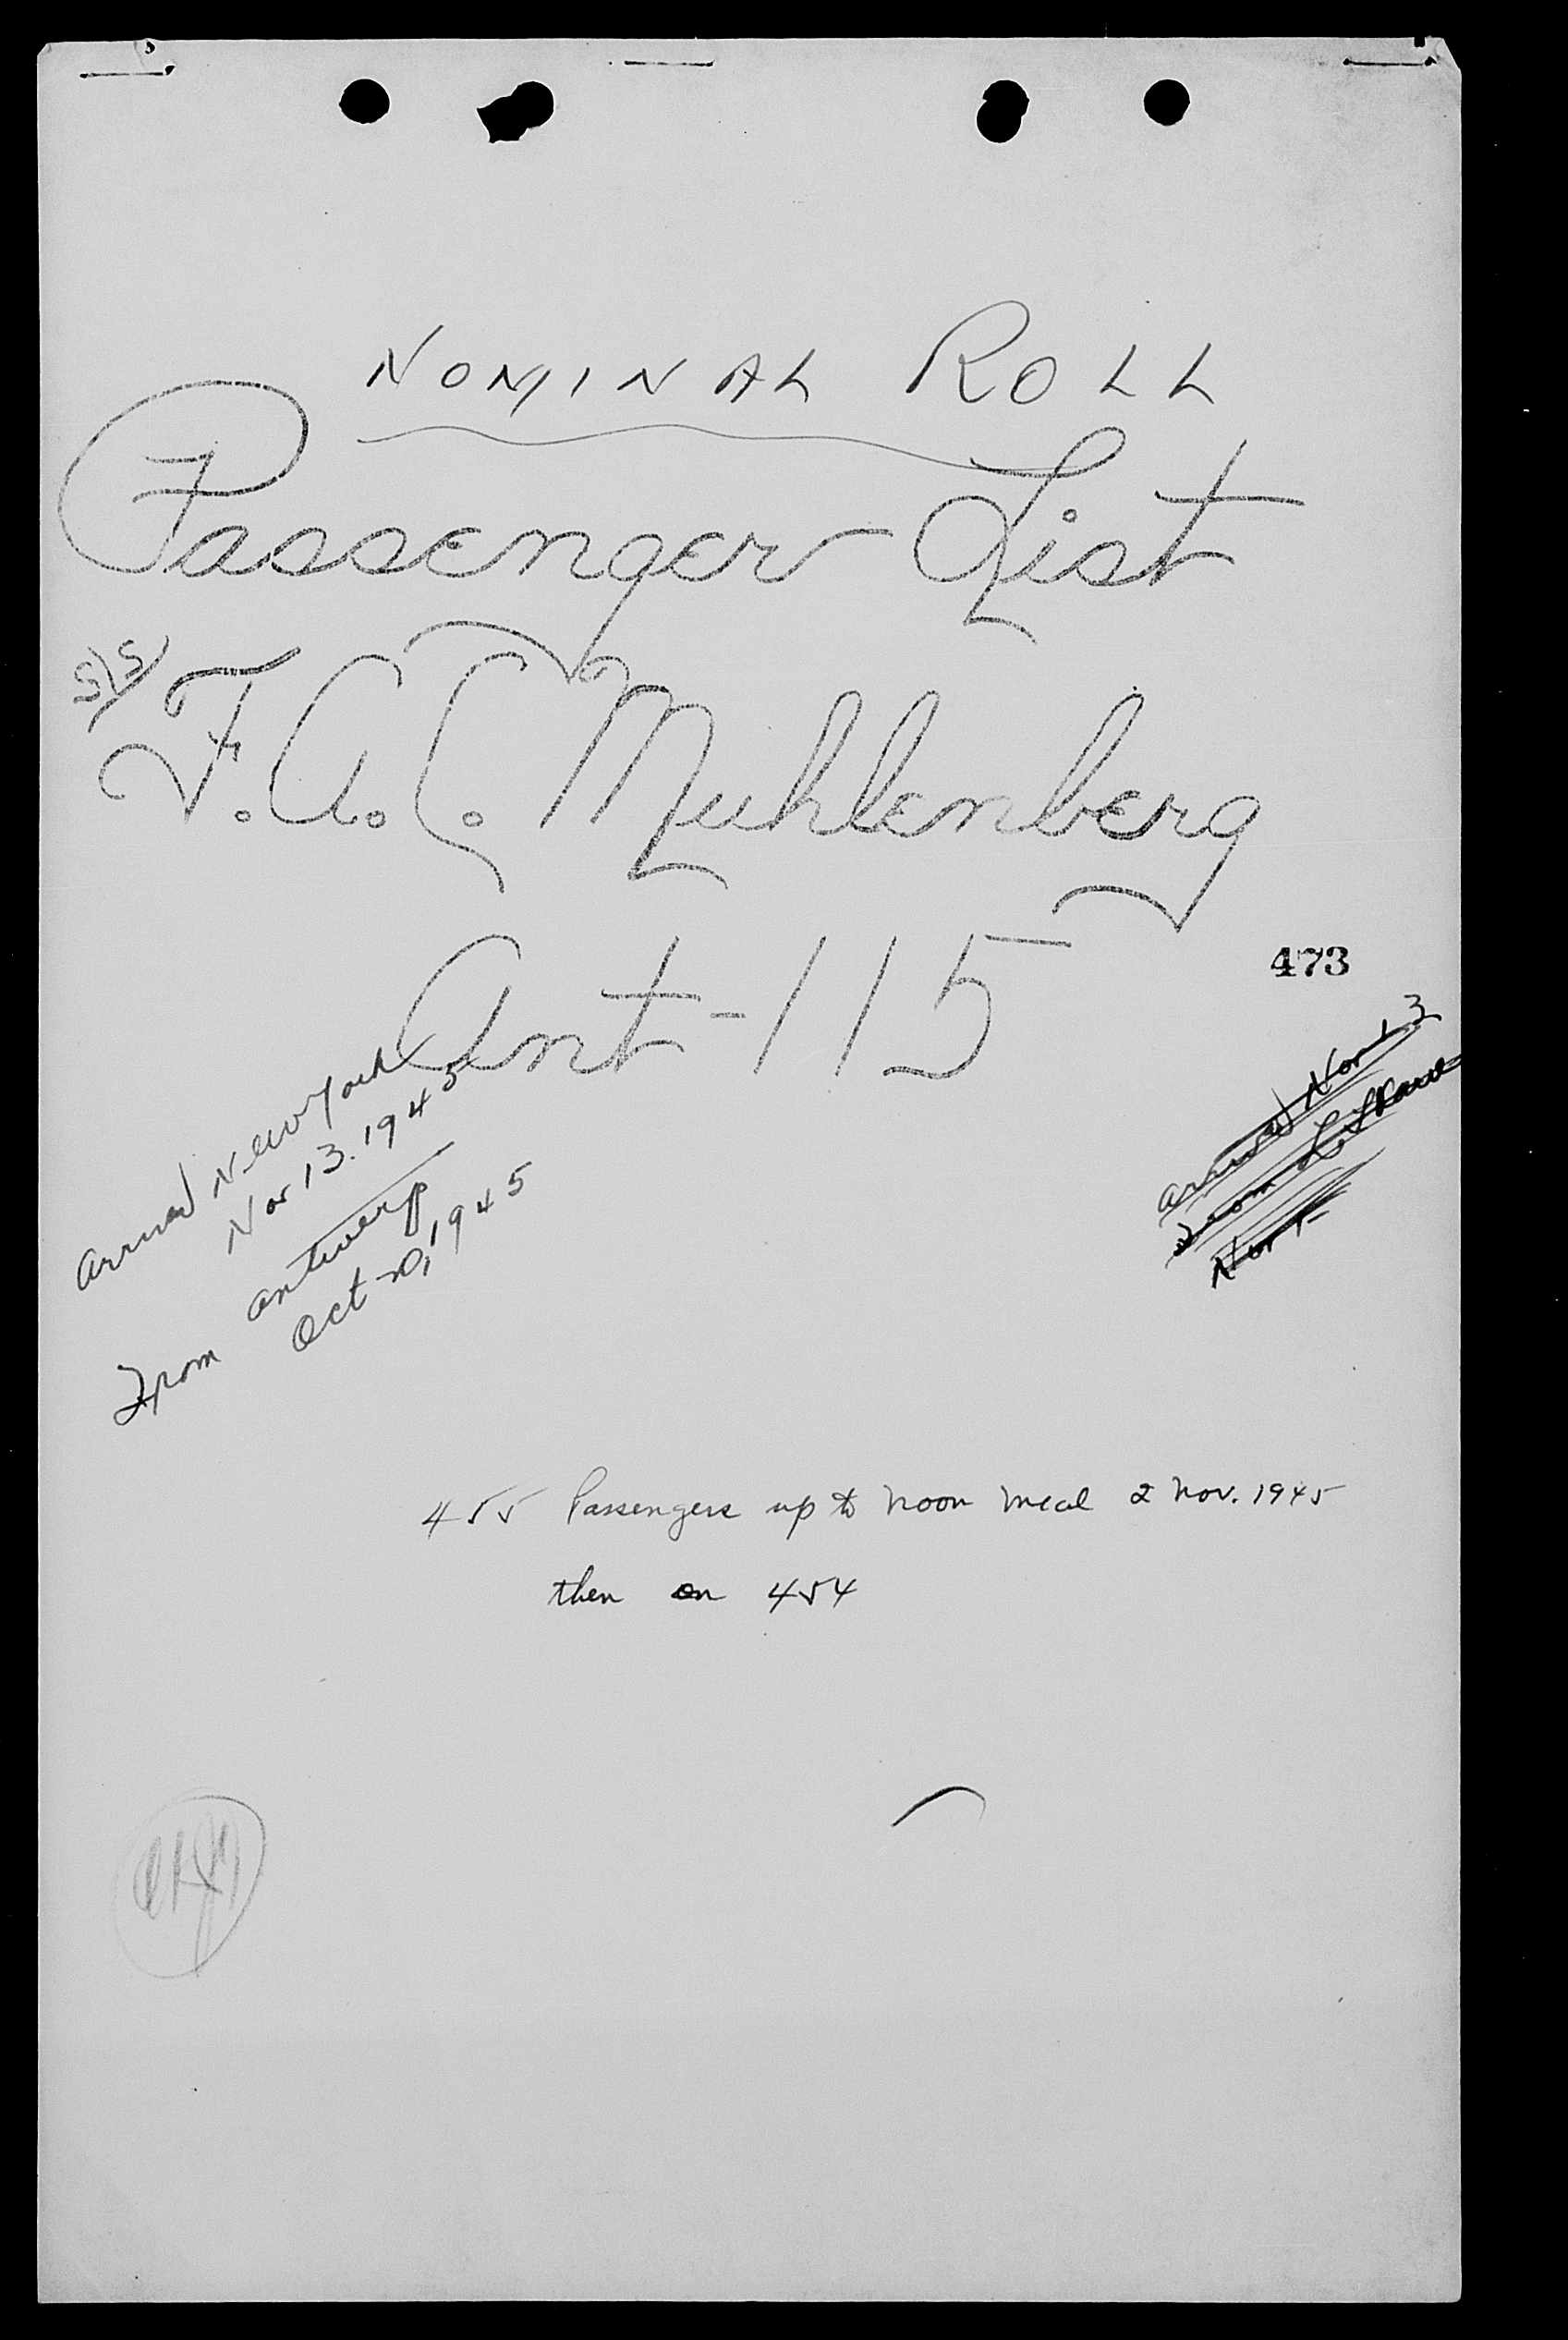 NOMINAL ROLL
Passenger List
S/S
F. A. C. Muhlenberg
Ant-115
473
Arrived New York
Nov 13. 1945
From Antwerp
Oct 1945
Arrived Nov 13
From Le Havre
Nov 1
455 Passengers up to noon meal 2 Nov. 1945
then on 454